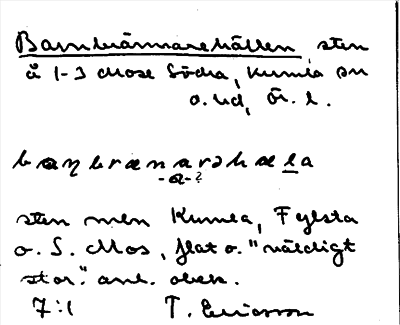 Barnbrännarehällen, sten
å 1-3 Mose Södra, Kumla sn
o. hd, Ör. l.
sten men Kumla, Fylsta
o. S. Mos, flat o. "väldigt
stor". anl. obek.
7:1 T. Ericsson